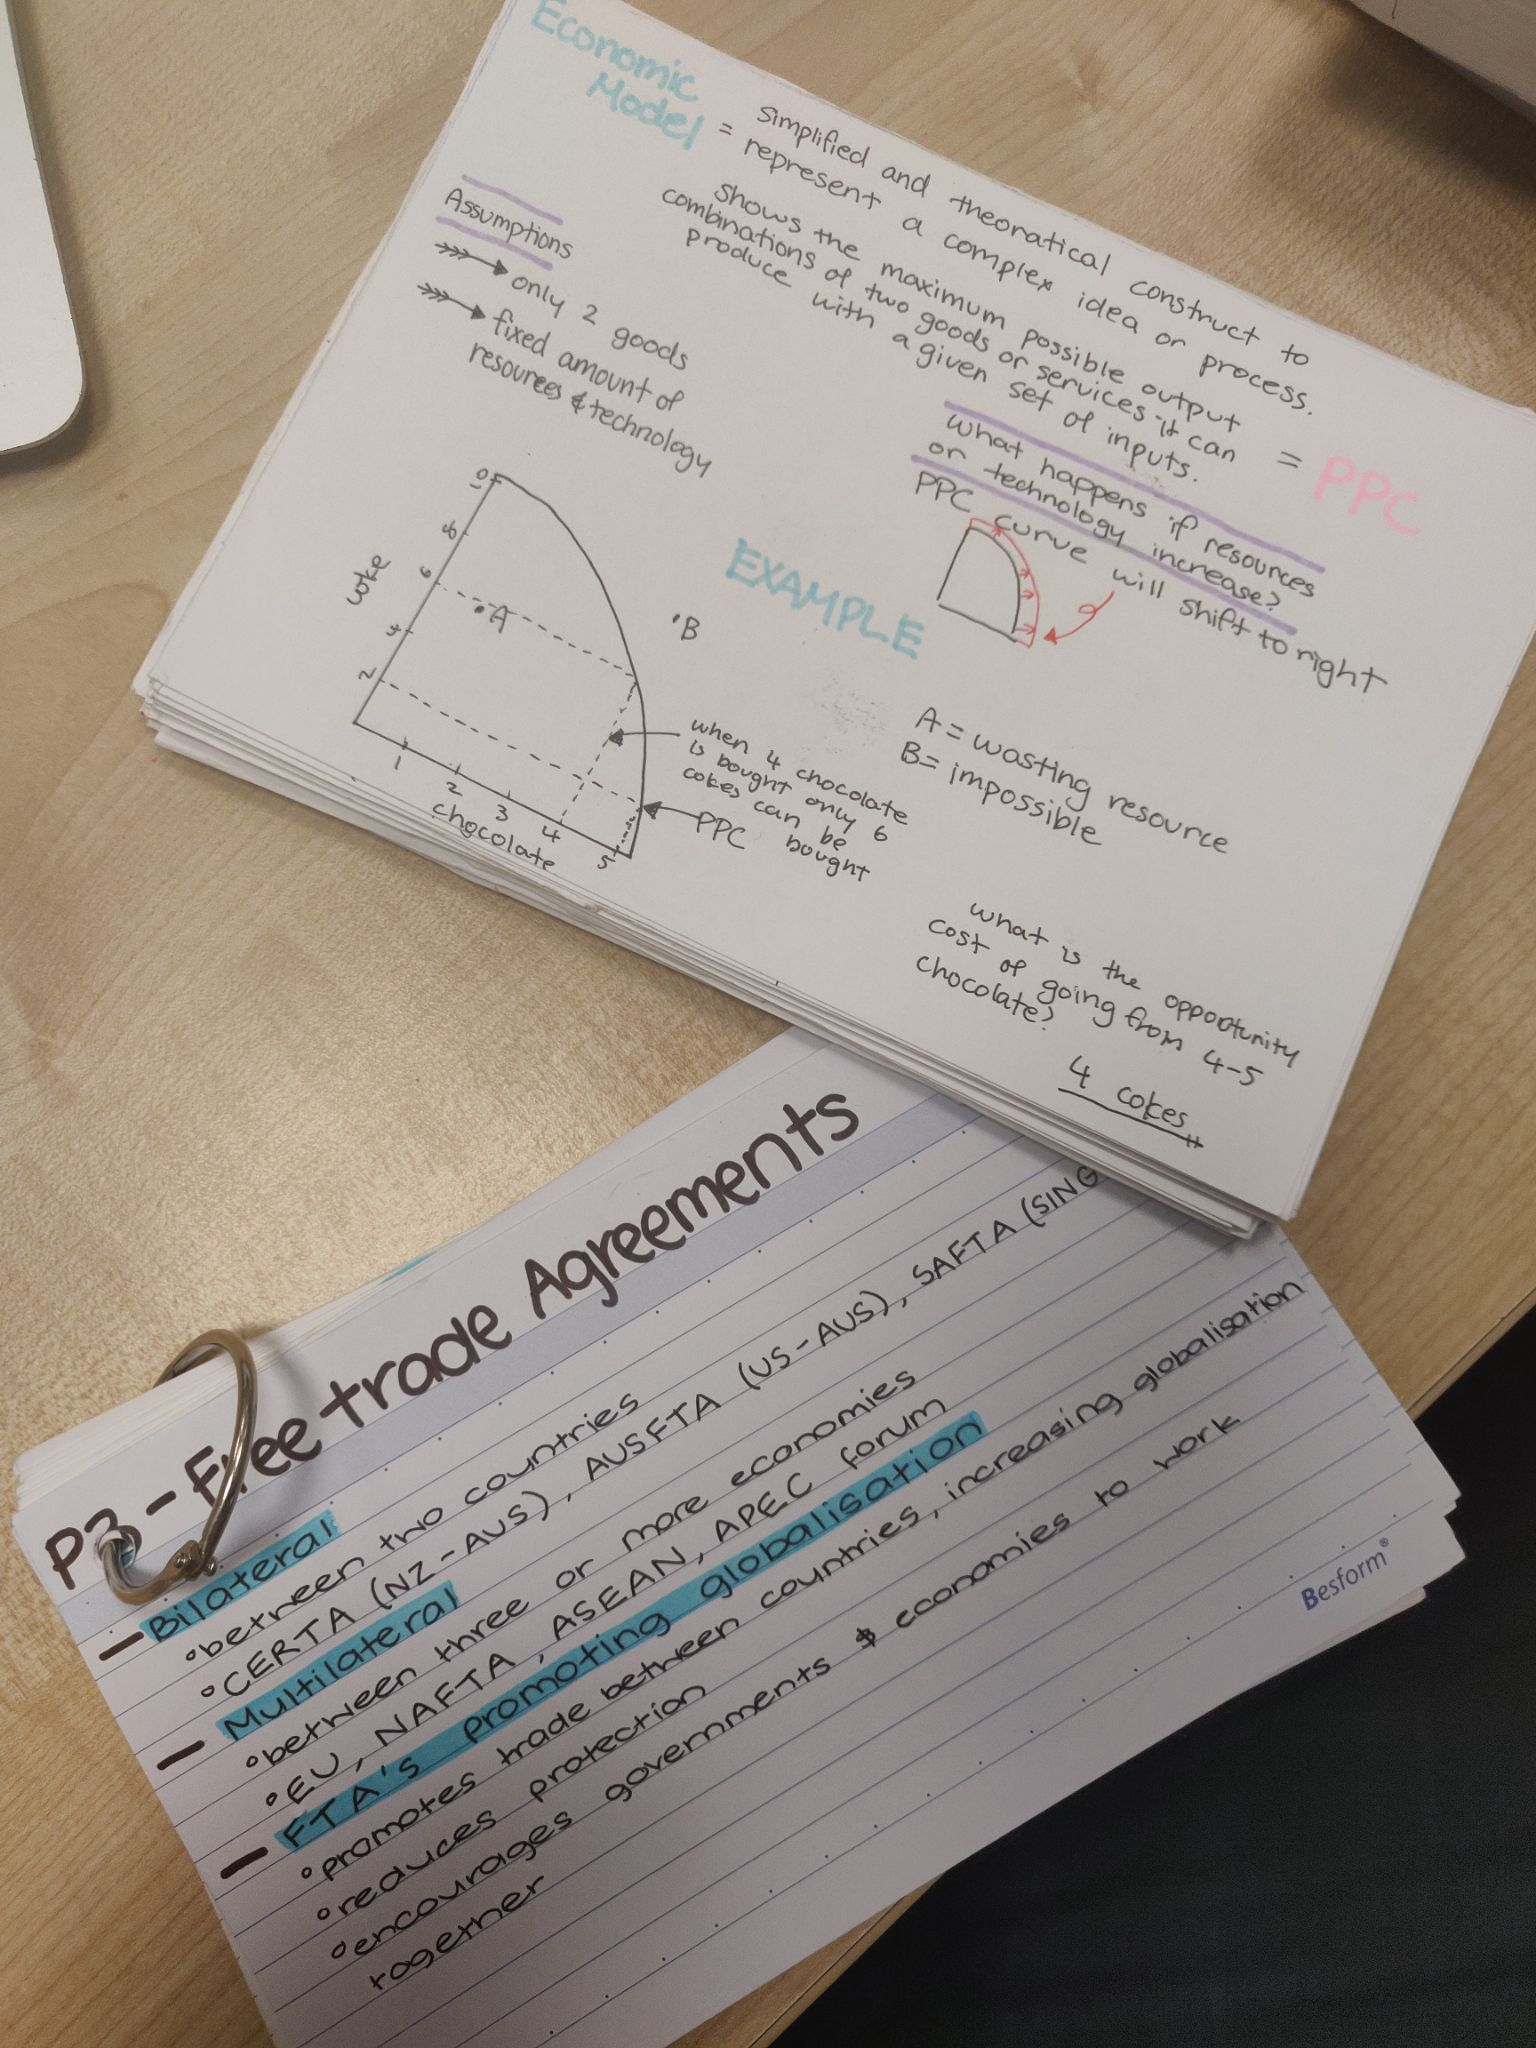 Economic
Model
= simplified and theoratical construct to
represent a complex idea or process.
shows the maximum possible output
combinations of two goods or services it can
produce with a given set of inputs.
= PPC
Assumptions
only 2 goods
fixed amount of
resources & technology
What happens if resources
or technology increase?
PPC curve will shift to right
EXAMPLE
10
8
6
4
2
coke
A
B
1
2
3
4
5
chocolate
when 4 chocolate
is bought only 6
cokes can be
bought
PPC
A = wasting resource
B = impossible
what is the opportunity
cost of going from 4-5
chocolate?
4 cokes
P3 - Free trade Agreements
- Bilateral
° between two countries
° CERTA (NZ-AUS), AUSFTA (US-AUS), SAFTA (SING
- Multilateral
° between three or more economies
° EU, NAFTA, ASEAN, APEC forum
- FTA's promoting globalisation
° promotes trade between countries, increasing globalisation
° reduces protection
° encourages governments & economies to work
together
Besform®